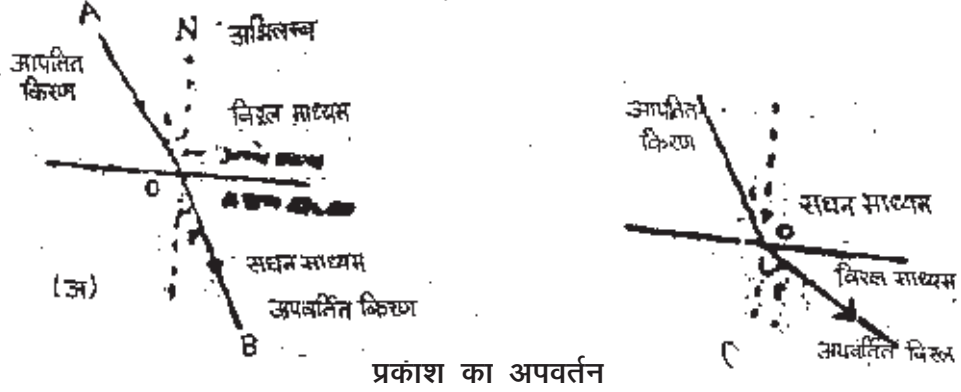 A
N अभिलम्ब
आपतित
किरण
विरल माध्यम
i
O
r
सघन माध्यम
(अ)
अपवर्तित किरण
B
आपतित
किरण
सघन माध्यम
O
विरल माध्यम
अपवर्तित
प्रकाश का अपवर्तन